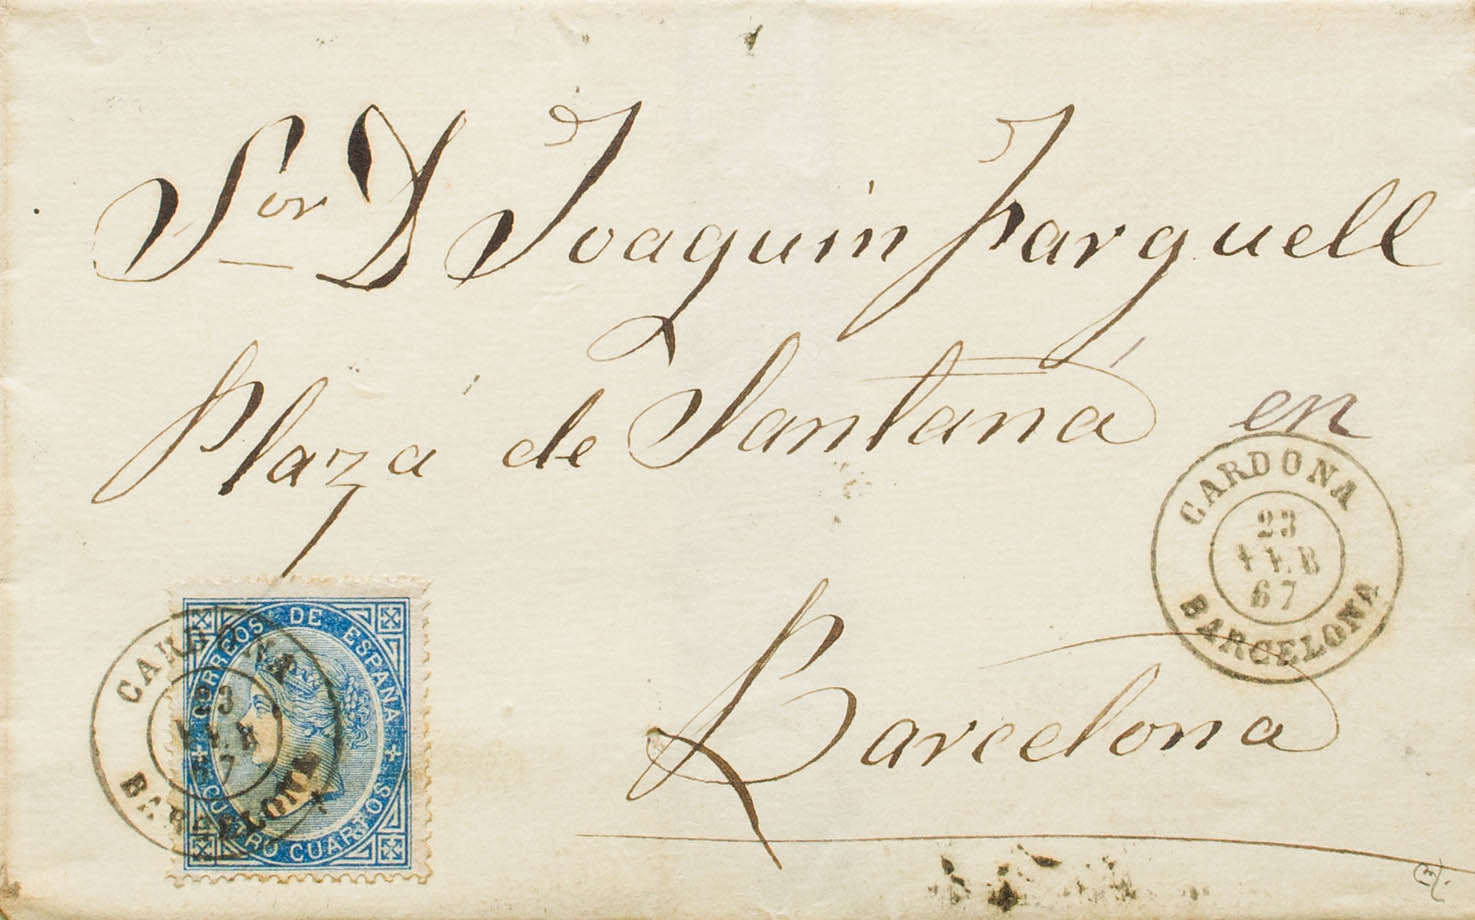 Sor D Joaquin Farguell
Plaza de Santana en
Barcelona
CARDONA
23
FEB
67
BARCELONA
CARDONA
23
FEB
67
BARCELONA
CORREOS DE ESPAÑA
CUATRO CUARTOS